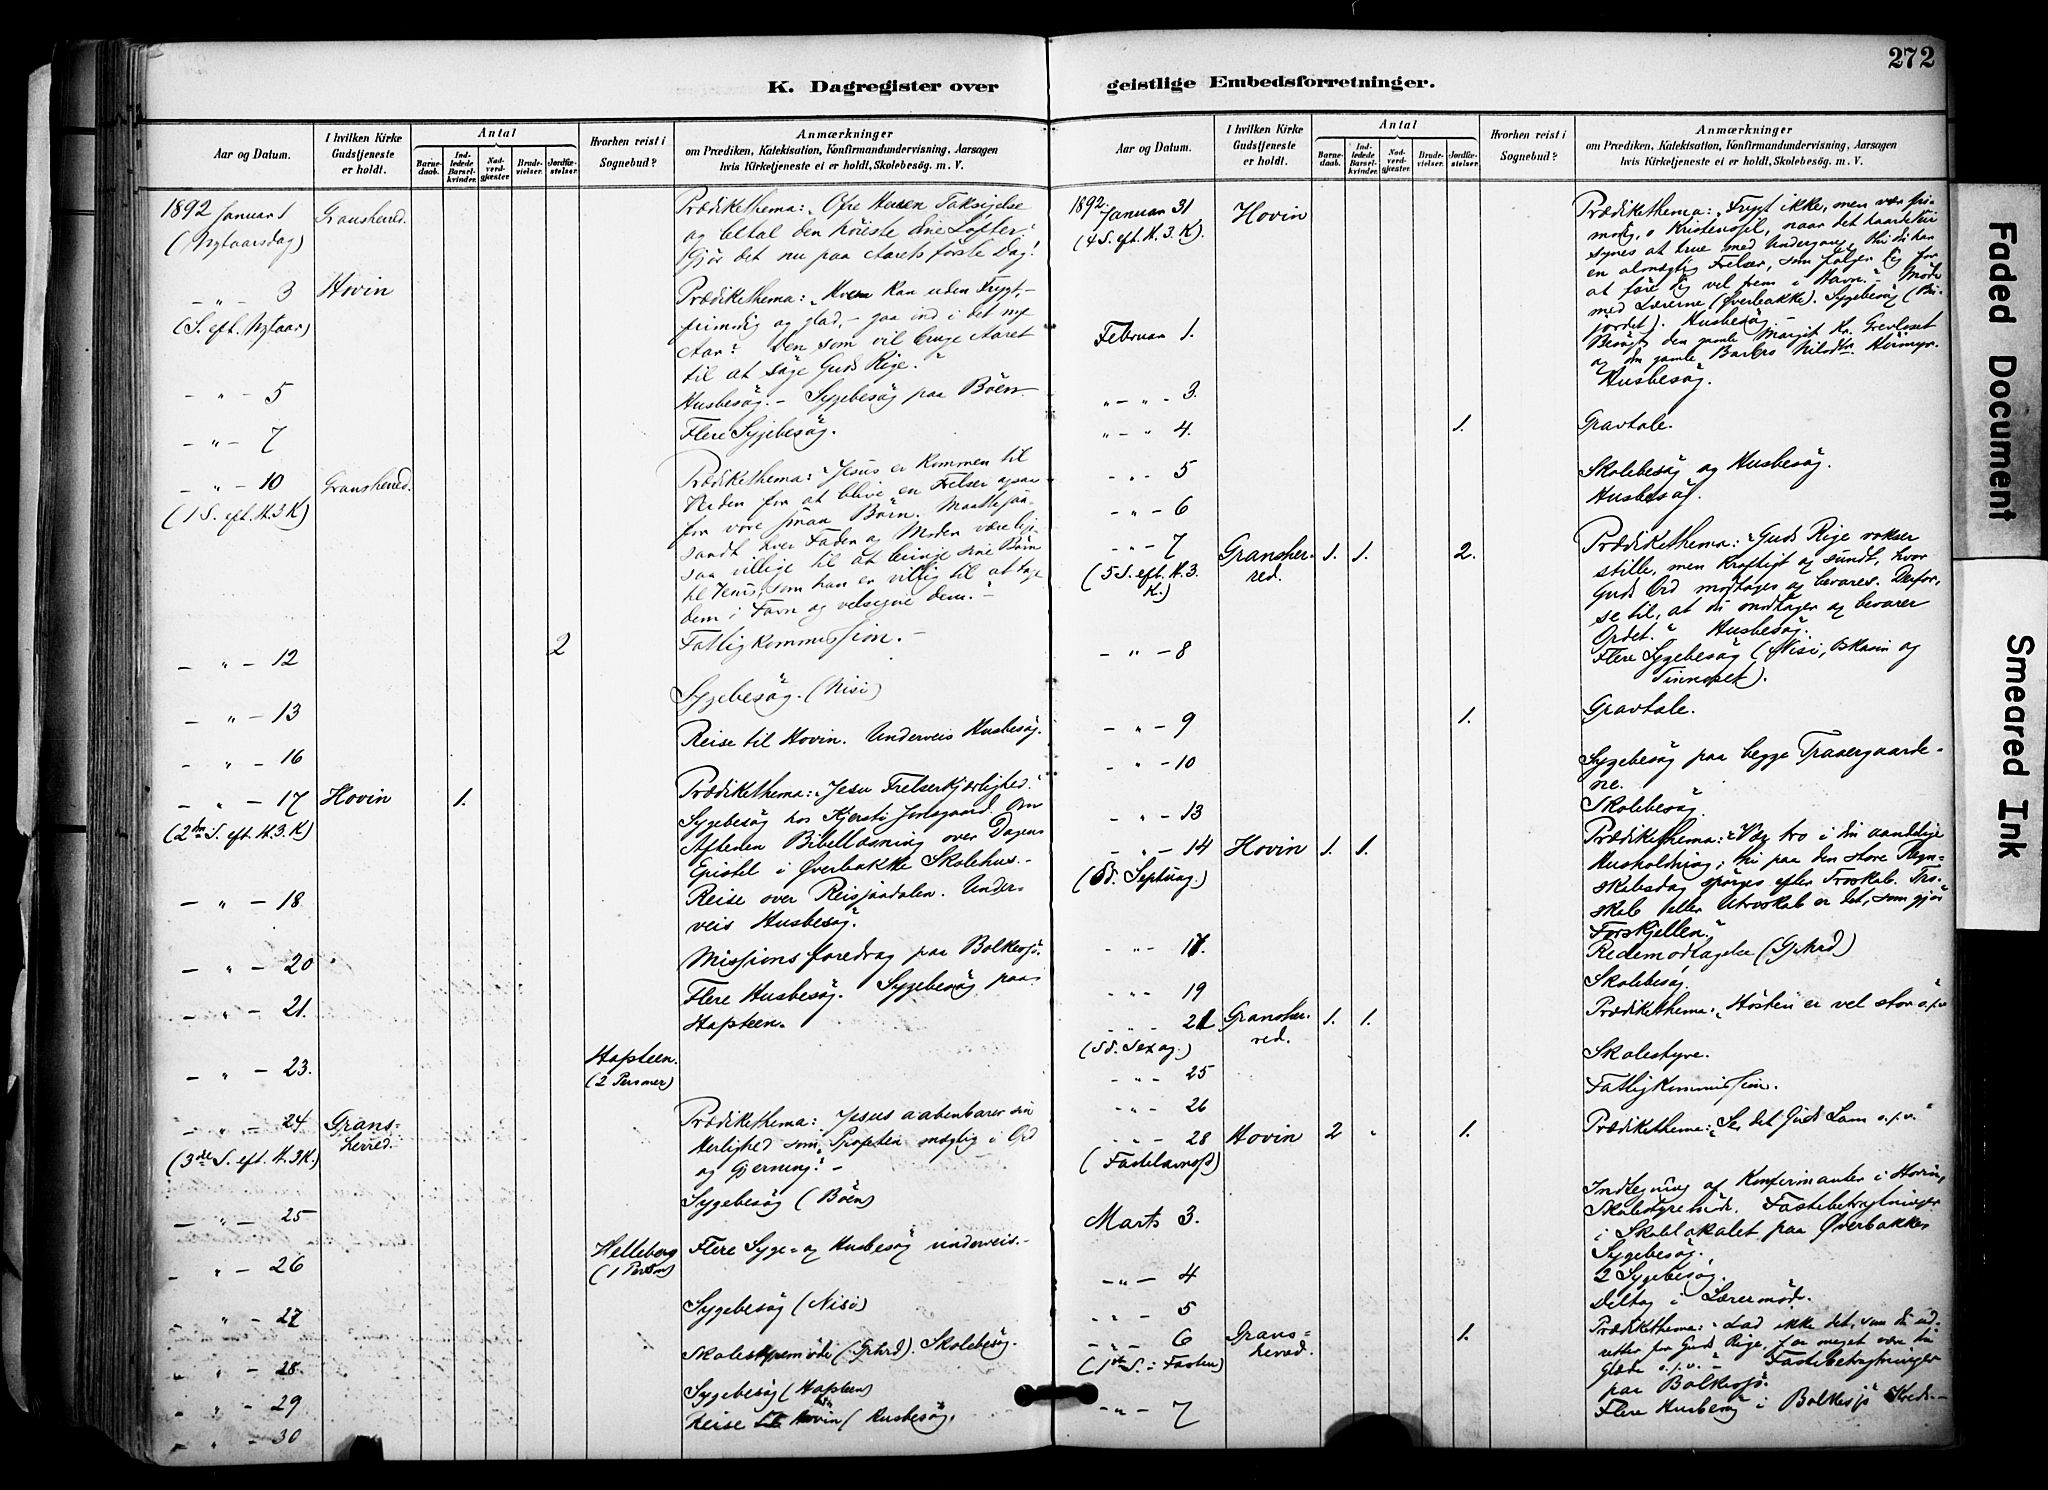 272
K. Dagregister over geistlige Embedsforretninger.
Aar og Datum.
I hvilken Kirke Gudstjeneste er holdt.
Antal
Barnedaab.
Indledede Barselkvinder.
Nadverdgjæster.
Brudevielser.
Jordfæstelser.
Hvorhen reist i Sognebud?
Anmærkninger
om Prædiken, Katekisation, Konfirmandundervisning, Aarsagen
hvis Kirketjeneste ei er holdt, Skolebesög. m. V.
1892 Januar 1 Gransherred. Prædikethema: "Ofre Herren Taksigelse
(Nytaarsdag) og betal den Höieste dine Löfter."
Gjör det nu paa Aarets förste Dag!
— " — 3 Hovin Prædikethema: "Hvem kan uden Frygt, –
(S. eft. Nytaar) frimodig og glad, – gaa ind i det nye
Aar? Den som vil bruge Aaret
til at söge Guds Rige."
— " — 5 Husbesög. – Sygebesög paa Böen.
— " — 7 Flere Sygebesög.
— " — 10 Gransherred. Prædikethema: "Jesus er kommen til
(1 S. eft. H.3K) Verden for at blive en Frelser ogsaa
for vore smaa Börn. Maatte
sandt hver Fader og Moder være
saa villige til at bringe sine Börn
til Jesus, som han er villig til at tage
dem i Favn og velsigne dem." –
— " — 12 2 Fattigkommission. –
Sygebesög. (Nisi)
— " — 13 Reise til Hovin. Underveis Husbesög.
— " — 16
— " — 17 Hovin 1. Prædikethema: "Jesu Frelserkjærlighed."
(2den S. eft. H.3.K) Sygebesög hos Kjersti. Om
Aftenen Bibellæsning over Dagens
Epistel i Överbakke Skolehus. –
— " — 18 Reise over Reisjaadalen. Underveis
Husbesög.
— " — 20 Missionsforedrag paa Bolkesjö.
— " — 21. Flere Husbesög. Sygebesög paa
Hapteen.
— " — 23. Hapteen.
(2 Personer)
— " — 24 Gransherred. Prædikethema: Jesus aabenbarer sin
(3die S. eft. H.3K.) Herlighed som "Profeten mægtig i Ord
og Gjerning." –
— " — 25 Sygebesög (Böen)
— " — 26 Helleberg Flere Syge- og Husbesög underveis. –
(1 Person)
— " — 27 Sygebesög (Nisi)
— " — 28 Skolestyremöde (Grhrd). Skolebesög.
— " — 29 Sygebesög (Hapteen)
— " — 30 Reise til Hovin (Husbesög.
Aar og Datum.
I hvilken Kirke Gudstjeneste er holdt.
Antal
Barnedaab.
Indledede Barselkvinder.
Nadverdgjæster.
Brudevielser.
Jordfæstelser.
Hvorhen reist i Sognebud?
Anmærkninger
om Prædiken, Katekisation, Konfirmandundervisning, Aarsagen
hvis Kirketjeneste ei er holdt, Skolebesög. m. V.
1892. Januar 31 Hovin Prædikethema: "Frygt ikke, men vær fri-
(4 S. eft. H.3.K). modig, o Kristensjel, naar det
synes at true med Undergang, thi du har
en almægtig Frelser, som fölger dig for
at före dig vel frem i Havn." Möde
med Lærerne (Överbakke). Sygebesög
Husbesög. –
Februar 1. Besögt den gamle Margit
og den gamle Barbro Nilsdtr.
— " — 3. Husbesög.
— " — 4. 1. Gravtale.
— " — 5 Skolebesög og Husbesög.
— " — 6 Husbesög.
— " — 7 Gransherred. 1. 1. 2. Prædikethema: "Guds Rige vokser
(5 S. eft. H.3. K.) stille, men kraftigt og sundt, hvor
Guds Ord modtages og bevares. Derfor,
se til, at du modtager og bevarer
Ordet." Husbesög.
— " — 8 Flere Sygebesög (Nisi, og
Tinnoset).
— " — 9 1. Gravtale.
— " — 10 Sygebesög paa begge Traaergaarde-
ne.
— " — 13 Skolebesög.
— " — 14 Hovin 1. 1. Prædikethema: "Vær tro i din aandelige
(Sd. Septuag.) Husholdning; thi paa den store Regn-
skabsdag spörges efter Troskab. Tro-
skab eller Utroskab er det, som gjör
Forskjellen."
— " — 17. Redemodtagelse (Grhrd)
— " — 19 Skolebesög.
— " — 21 Gransherred. 1. 1. Prædikethema: "Hösten er vel stor o.s.v."
(Sd. Sexag.)
— " — 25 Skolestyre.
— " — 26 Fattigkommission.
— " — 28 Hovin 2 " 1. Prædikethema: "Se det Guds Lam o.s.v."
(Fastelavns)
Marts 3. Indtegning af Konfirmanter i Hovin,
Skolestyremöde. Fastebetragtninger
i Skolelokalet paa Överbakke
Sygebesög.
— " — 4 2 Sygebesög.
— " — 5 Deltog i Lærermöde.
— " — 6 Gransherred. 1. Prædikethema: "Lad ikke det, som du ud-
(1ste S. i Fasten) retter for Guds Rige, for meget være din
Glæde o.s.v." – Fastebetragtninger
paa Bolkesjö.
— " — 7 Flere Husbesög i Bolkesjö Kreds. –
Faded Document
Smeared Ink